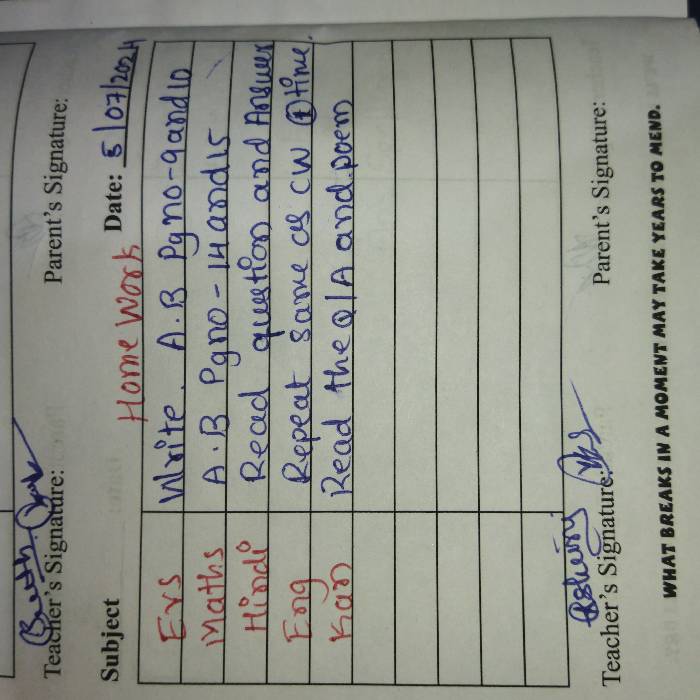 Parent's Signature:
Teacher's Signature:
Home Work
Subject Date: 5/07/2024
EVS Write. A.B Pgno-9and10
Maths A.B Pgno-14and15
Hindi Read question and Answer
Eng Repeat same as CW ① time.
Kan Read the Q/A and poem
Teacher's Signature: Parent's Signature:
WHAT BREAKS IN A MOMENT MAY TAKE YEARS TO MEND.